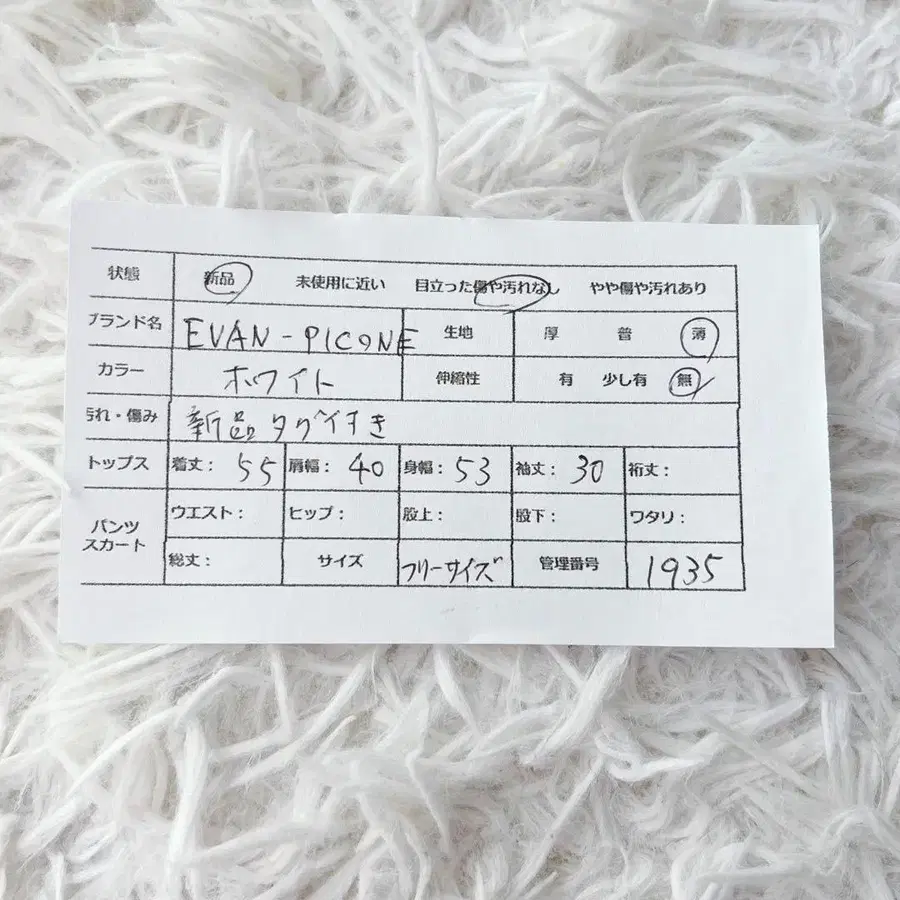 状態 新品 未使用に近い 目立った傷や汚れなし やや傷や汚れあり
ブランド名 EVAN-PICONE 生地 厚 普 薄
カラー ホワイト 伸縮性 有 少し有 無
汚れ・傷み 新品タグ付き
トップス 着丈: 55 肩幅: 40 身幅: 53 袖丈: 30 裄丈:
パンツ
スカート
ウエスト: ヒップ: 股上: 股下: ワタリ:
総丈: サイズ フリーサイズ 管理番号 1935